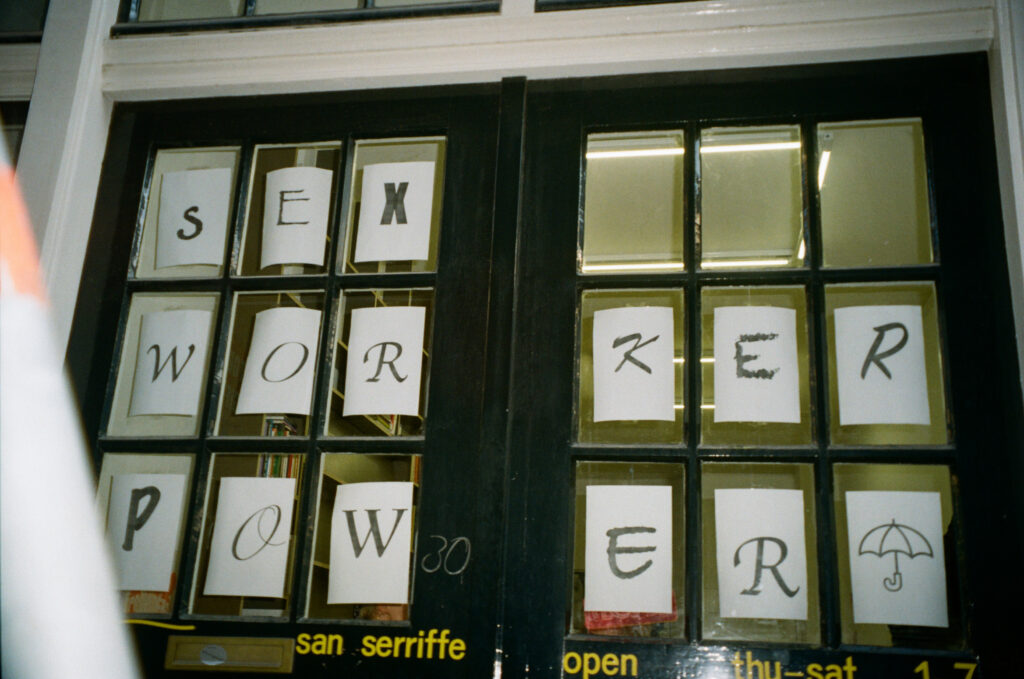 SEX
WORKER
POWER
30
san serriffe
open thu-sat 1-7